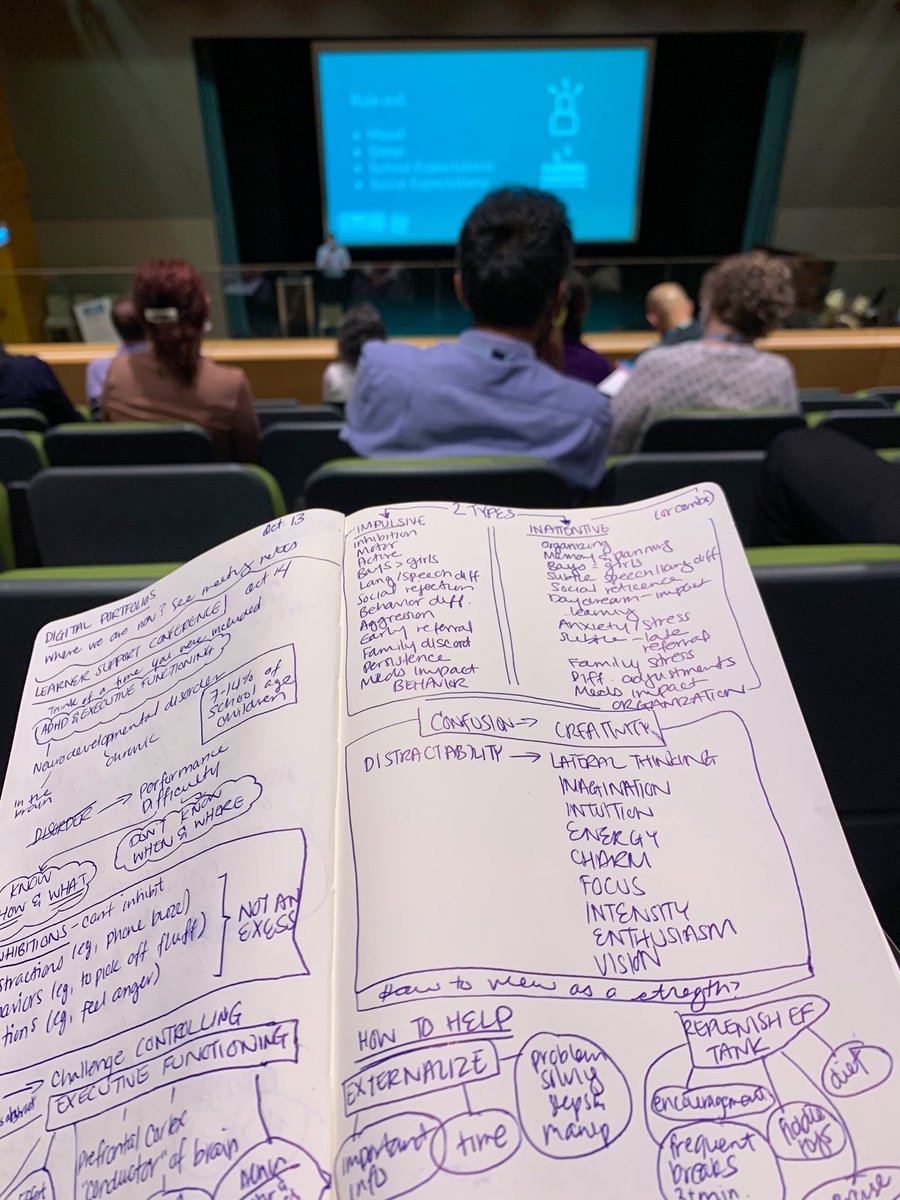 Rule out
Mood
Sleep
School Expectations
Social Expectations
Oct. 13
DIGITAL PORTFOLIOS
Where we are now? See meeting notes
Oct 14
LEARNER SUPPORT CONFERENCE
Think of a time you were included
ADHD & EXECUTIVE FUNCTIONING
Neurodevelopmental disorder
chronic
in the
brain
7-14% of
school age
children
DISORDER → Performance
Difficulty
DON'T KNOW
WHEN & WHERE
KNOW
HOW & WHAT
INHIBITIONS - can't inhibit
stractions (eg, phone buzz)
haviors (eg, to pick off fluff)
otions (eg, feel anger)
NOT AN
EXESS
→ Challenge CONTROLLING
EXECUTIVE FUNCTIONING
prefrontal cortex
"conductor" of brain
2 TYPES
(or combo)
IMPULSIVE
inhibition
Motor
Active
Boys > girls
Lang/speech diff
Social rejection
Behavior diff.
Aggression
Early referral
Family discord
Persistence
Meds impact
BEHAVIOR
INATTENTIVE
organizing
Memory & planning
Boys = girls
Subtle speech/lang diff
Social reticence
Daydream - impact
learning
Anxiety / stress
Subtle - late
referral
Family stress
Diff. adjustments
Meds impact
ORGANIZATION
CONFUSION → CREATIVITY
DISTRACTABILITY → LATERAL THINKING
IMAGINATION
INTUITION
ENERGY
CHARM
FOCUS
INTENSITY
ENTHUSIASM
VISION
How to view as a strength?
HOW TO HELP
EXTERNALIZE
important
info
time
problem
solving
steps
manip
REPLENISH EF
TANK
encouragement
frequent
breaks
fiddle
toys
diet